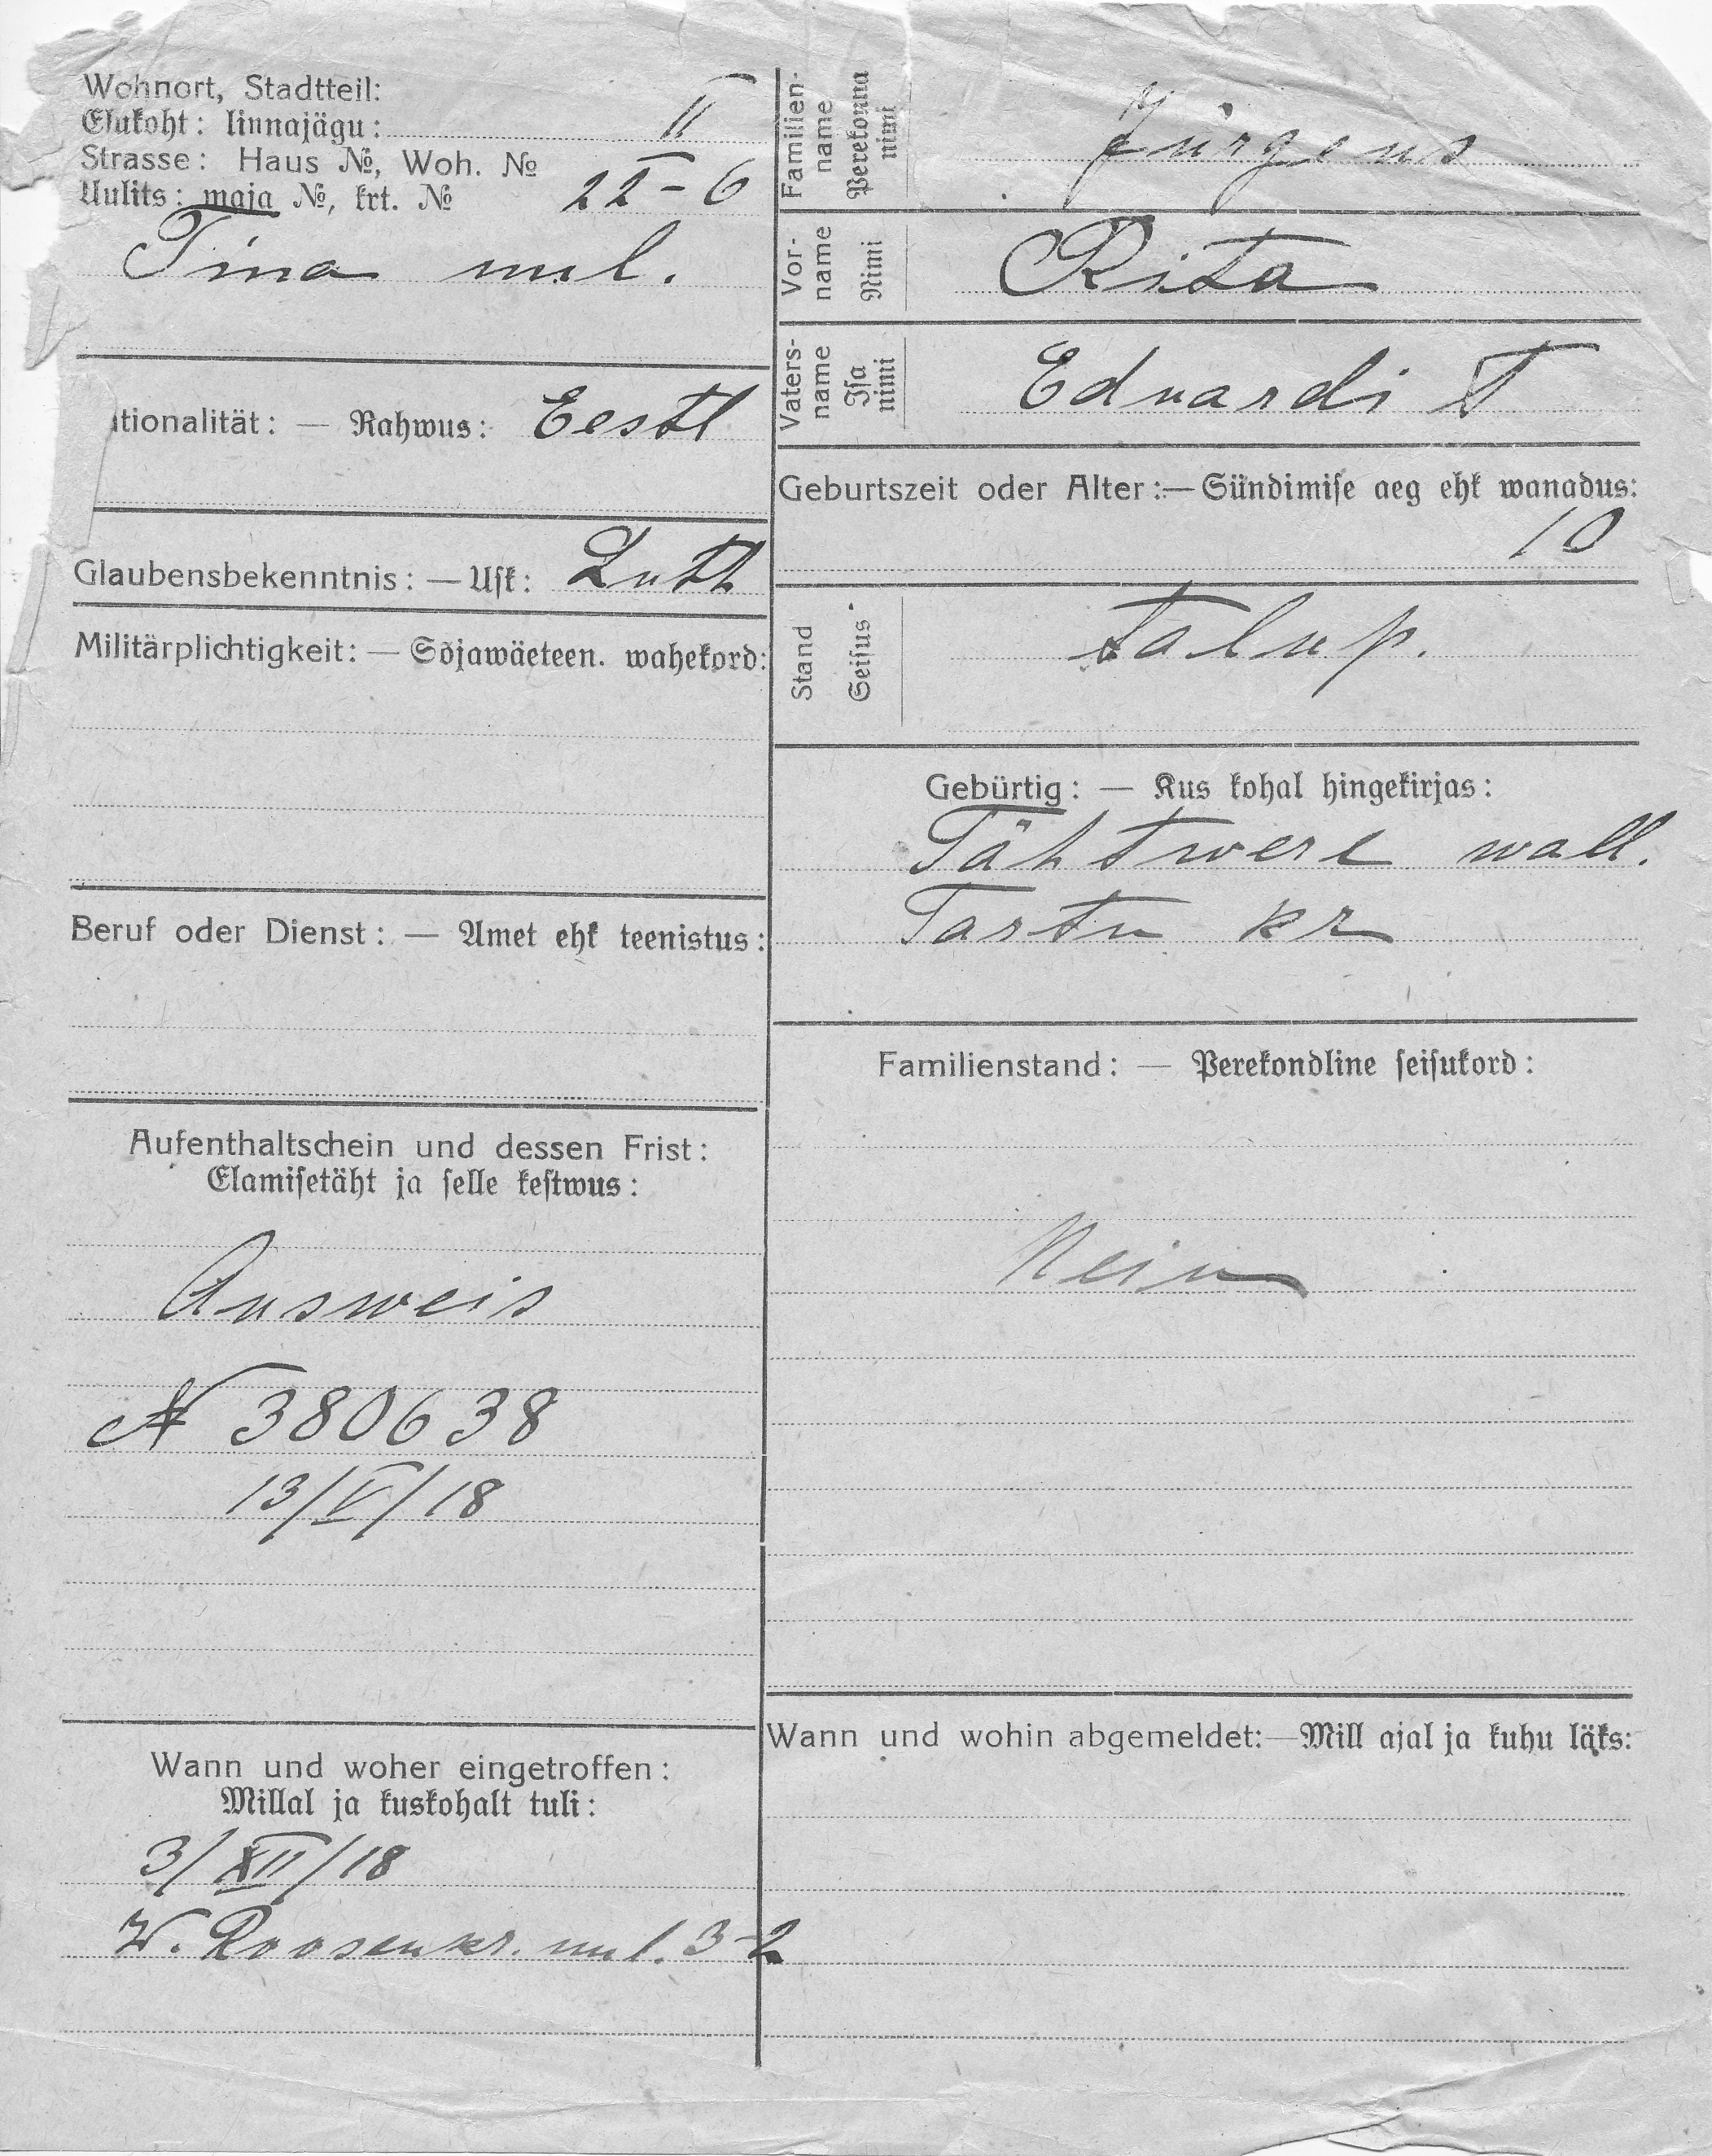 Wohnort, Stadtteil:
Elukoht: linnajägu: II
Strasse: Haus №, Woh. №
Uulits: maja №, krt. № 22-6
Tina uul.
tionalität: — Rahwus: Eestl
Glaubensbekenntnis: — Usk: Luth
Militärplichtigkeit: — Sõjawäeteen. wahekord:
Beruf oder Dienst: — Amet ehk teenistus:
Aufenthaltschein und dessen Frist:
Elamisetäht ja selle kestwus:
Ausweis
N 380638
13/V/18
Wann und woher eingetroffen:
Millal ja kuskohalt tuli:
3/XII/18
W. Roosenkr. uul. 3-2
Familien-
name
Perekonna
nimi
Jürgens
Vor-
name
Nimi
Rita
Vaters-
name
Isa
nimi
Eduardi T
Geburtszeit oder Alter:—Sündimise aeg ehk wanadus:
10
Stand
Seisus
talup.
Gebürtig: — Kus kohal hingekirjas:
Tähtwere wall.
Tartu kr
Familienstand: — Perekondline seisukord:
Nein
Wann und wohin abgemeldet:—Mill ajal ja kuhu läks: